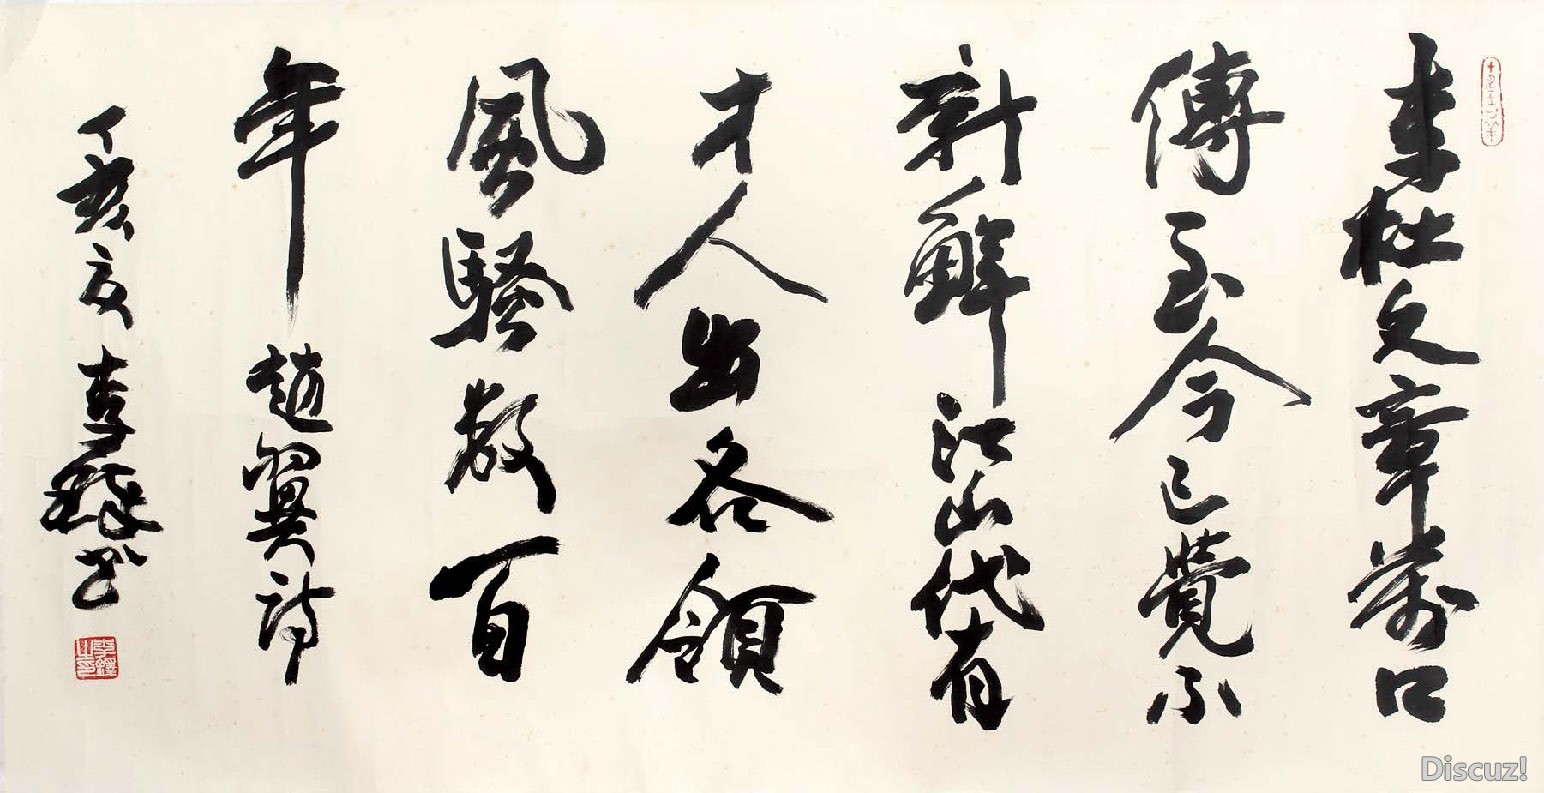 李杜文章萬口
傳至今已覺不
新鮮江山代有
才人出各領
風騷數百
年 趙翼詩
丁亥夏 李鐸書
李鐸之印
Discuz!